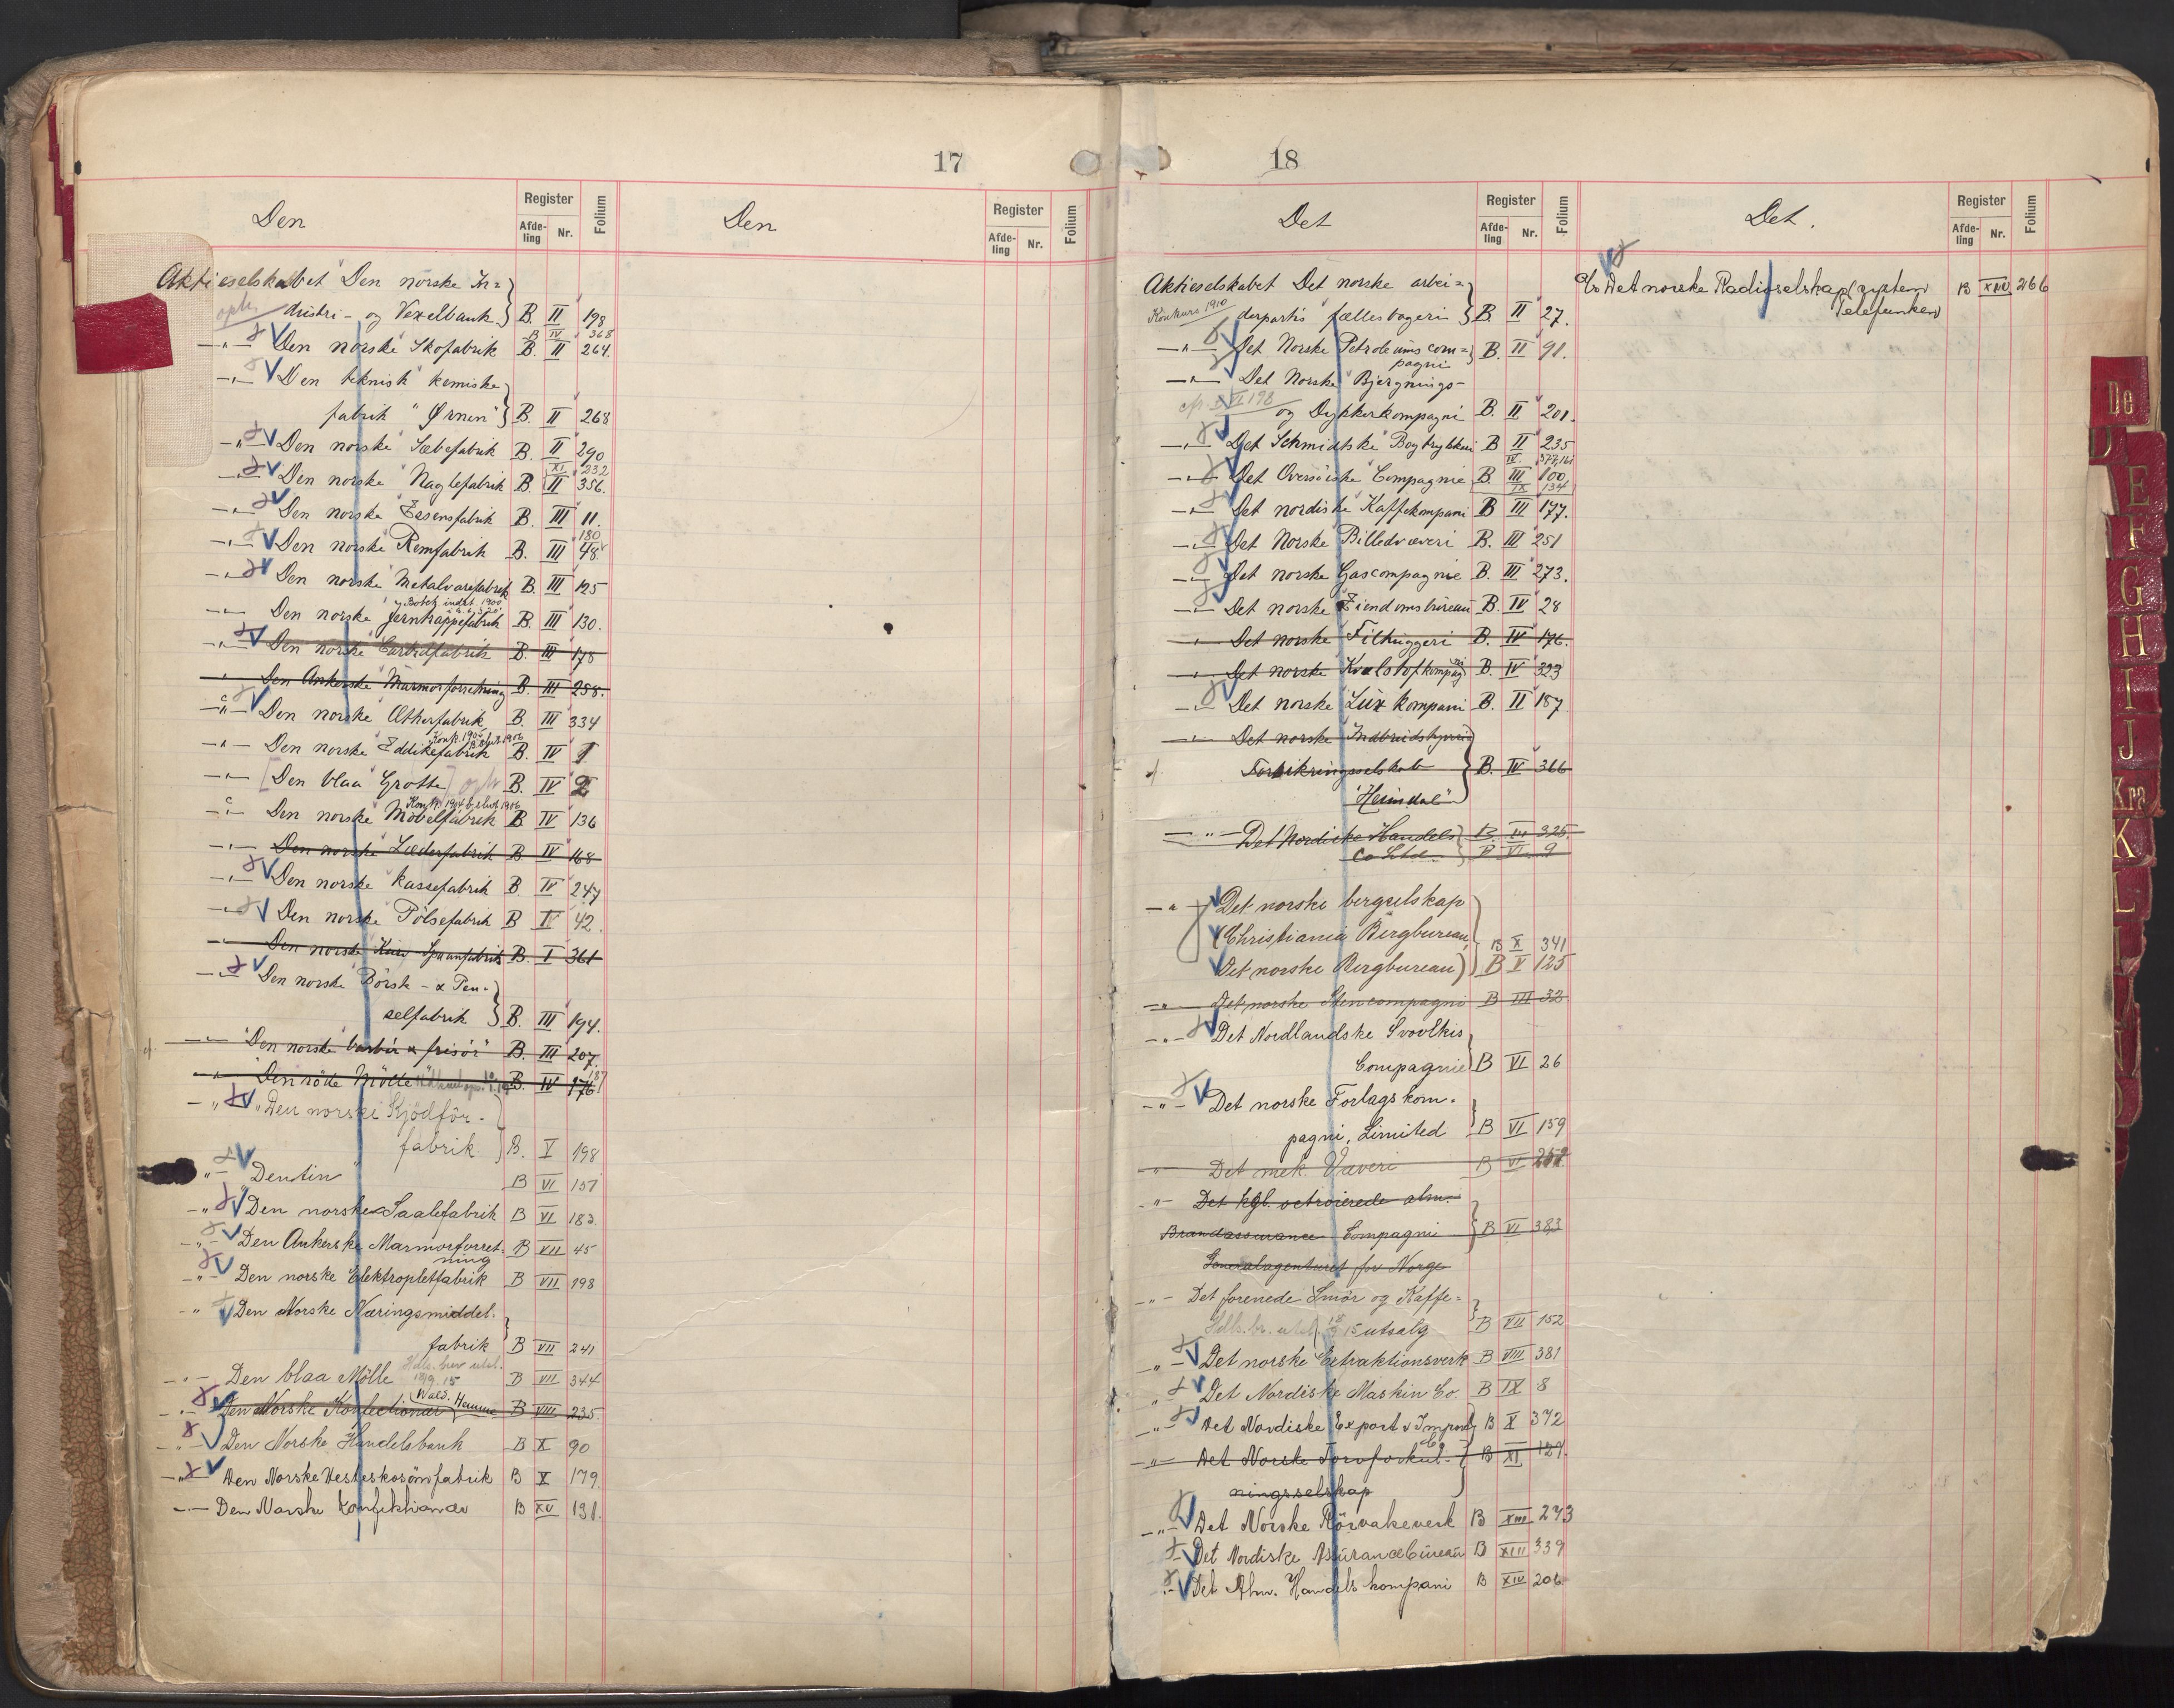 17
Den
Register
Afde-
ling
Nr.
Folium
Den
Register
Afde-
ling
Nr.
Folium
Aktieselskabet "Den norske In=
dustri- og Vexelbank B. II 198
B IV 368
-"- Den norske Skofabrik B. II 264.
-"- Den teknisk kemiske
fabrik "Ørnen" B. II 268
-"- Den norske Sæbefabrik B. II 290
XI 232
-"- Den norske Naglefabrik B II 356.
-"- Den norske Essensfabrik B. III 11.
180
-"- Den norske Remfabrik B. III 48.
-"- Den norske Metalvarefabrik B. III 125
-"- Den norske Jernkappefabrik B. III 130.
-"- Den norske Carbidfabrik B. III 178
" Den Ankerske Marmorforretning B. III 258.
-"- Den norske Ætherfabrik B. III 334
Konk. 1905 slut 1906
-"- Den norske Eddikefabrik B. IV 1
-"- [Den blaa Grotte] oph B. IV 2
Konk. 1904 slut 1906
-"- Den norske Møbelfabrik B. IV 136
-"- Den norske Læderfabrik B IV 168
-"- Den norske Kassefabrik B. IV 247
-"- Den norske Pölsefabrik B IV 42.
-"- Den norske Spaanfabrik B. I 361
-"- Den norske Börste- & Pen-
selfabrik B. III 194.
-"- "Den norske barber & frisör" B. III 207.
" Den röde Mölle B. IV 176
-"- "Den norske Kjödför-
fabrik B. V 198
"- "Dentin" B VI 157
-"- Den norske Saalefabrik B VI 183.
-"- Den Ankerske Marmorforret- B VII 45
ning
-"- Den norske Elektropletfabrik B VII 198
-"- Den Norske Næringsmiddel-
fabrik B VII 241
Hdls. brev utst.
-"- Den blaa Mölle 13/9. 15 B VII 344
Wald. Hamme
-"- Den Norske Konfectionær B VIII 235
-"- Den Norske Handelsbank B X 90
-"- Den Norske Hesteskosömfabrik B X 179.
-"- Den Norske Konfektionær B XV 191.
18
Det
Register
Afde-
ling
Nr.
Folium
Det.
Register
Afde-
ling
Nr.
Folium
Aktieselskabet Det norske arbei=
Konkurs 1910
derpartis fællesbageri B. II 27.
-"- Det Norske Petroleums com= B. II 91.
pagni
-"- Det Norske Bjergnings-
cfr. B VI 198
og Dykkerkompagni B. II 201.
-"- Det Schmidtske Bogtrykkeri B II 235
IV.
-"- Det Oversöiske Compagnie B. III 100
IX 134
-"- Det nordiske Kaffekompani B III 177.
-"- Det Norske Billedvæveri B. III 251
-"- Det norske Gascompagnie B. III 273.
-"- Det norske Eiendomsbureau B. IV 28
" Det norske Filhuggeri B. IV 176.
-"- Det norske Kvælstofkompagni B. IV 323
-"- Det norske Lux kompani B. II 187
-"- Det norske Indbrudstyveri
Forsikringsselskab B. IV 366
"Heimdal"
-"- Det Nordiske Handels B III 325.
Co Ltd. B VI 9
-"- Det norske bergselskap
(Christiania Bergbureau, B X 341
Det norske Bergbureau) B V 125
-"- Det norske Stencompagni B III 32
-"- Det Nordlandske Svovlkis
Compagnie B VI 26
-"- Det norske Forlagskom-
pagni, Limited B VI 159
" Det mek. Væveri B VI 251
-"- Det kgl. octroierede alm.
Brandassurance Compagni B VI 383
Generalagenturet for Norge
-"- Det forenede Smör og Kaffe=
utsalg B VII 152
"- Det norske Extraktionsverk B VIII 381
"- Det Nordiske Maskin Co. B IX 8
-"- Det Nordiske Export & Import B X 372
Co
-"- Det Norske Torvforkul- B XI 127.
ningsselskap
-"- Det Norske Rörvakeverk B XIII 273
- Det Nordiske Assurancebureau B XIII 339
-"- Det Alm. Handelskompani B XIV 206
A/s Det norske Radioselskap (system B XIV 266
Telefunken)
De
D
E
F
G
H
I
J
Kra
K
L